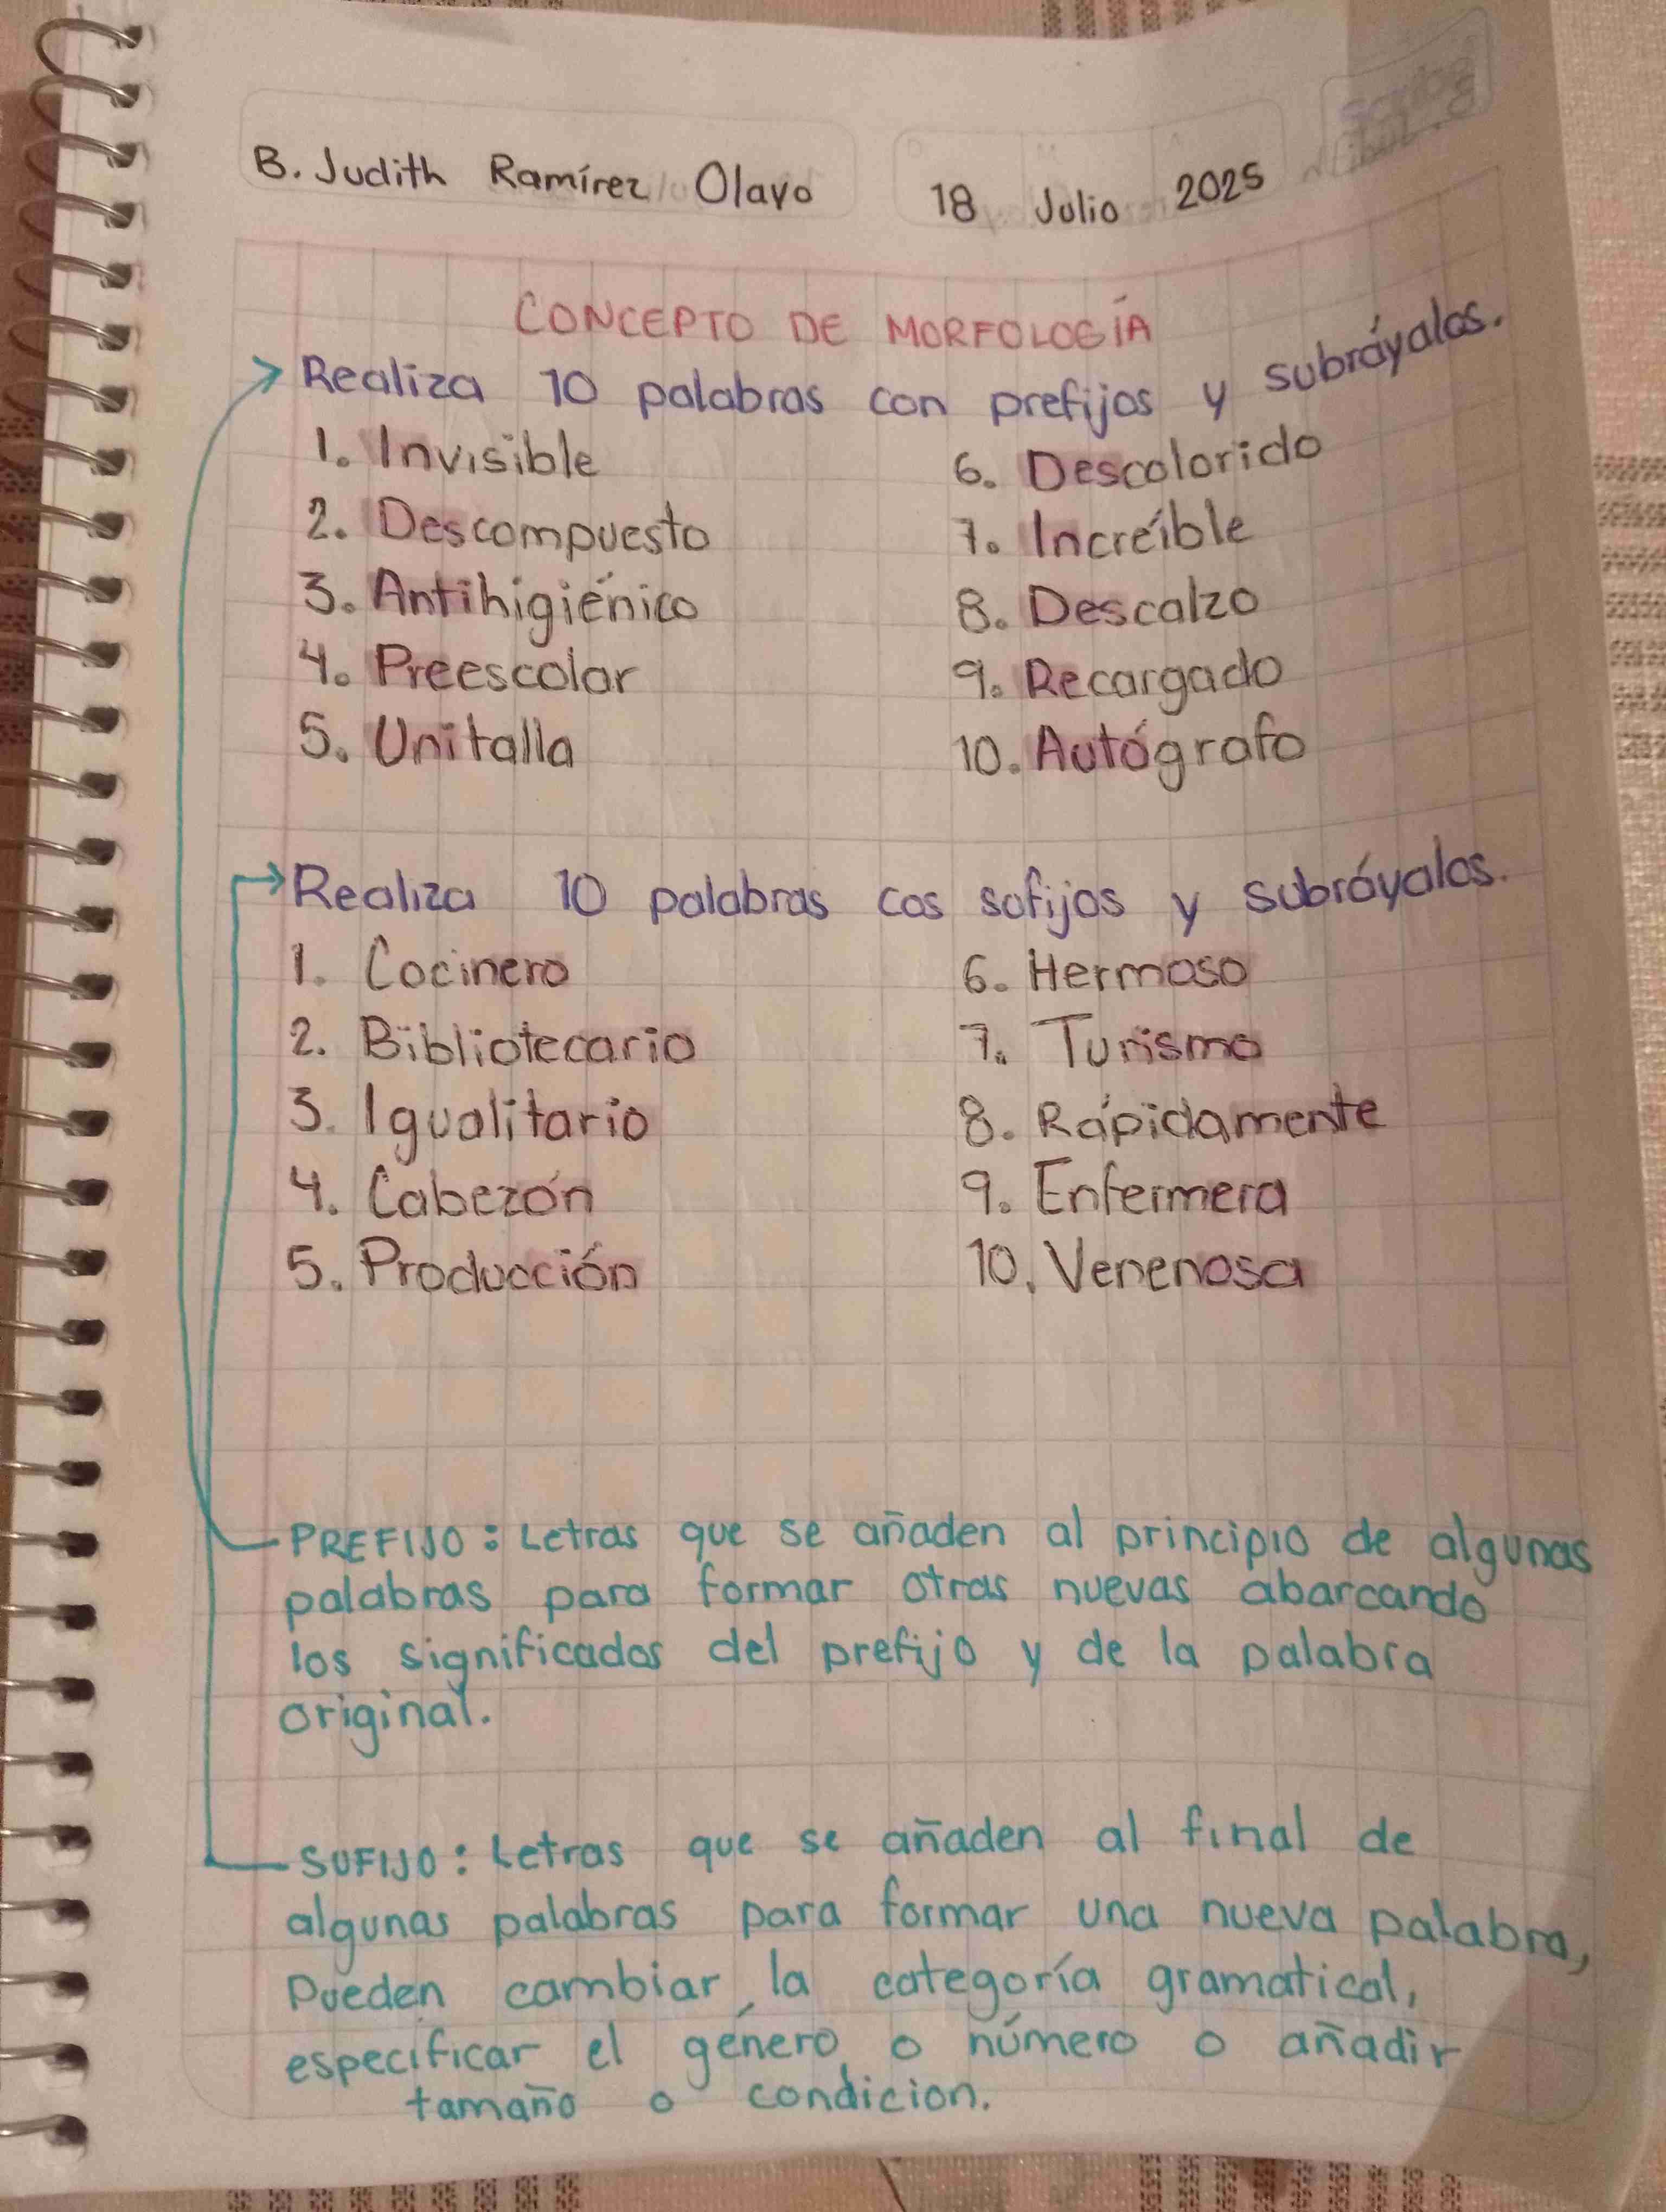 B. Judith Ramírez Olayo 18 Julio 2025
CONCEPTO DE MORFOLOGÍA
Realiza 10 palabras con prefijos y subráyalas.
1. Invisible
2. Descompuesto
3. Antihigiénico
4. Preescolar
5. Unitalla
6. Descolorido
7. Increíble
8. Descalzo
9. Recargado
10. Autógrafo
Realiza 10 palabras cos sofijos y subráyalas.
1. Cocinero
2. Bibliotecario
3. Igualitario
4. Cabezón
5. Producción
6. Hermoso
7. Turismo
8. Rápidamente
9. Enfermera
10. Venenosa
PREFIJO: Letras que se añaden al principio de algunas
palabras para formar otras nuevas abarcando
los significados del prefijo y de la palabra
original.
SUFIJO: Letras que se añaden al final de
algunas palabras para formar una nueva palabra,
Pueden cambiar la categoría gramatical,
especificar el género o número o añadir
tamaño o condicion.